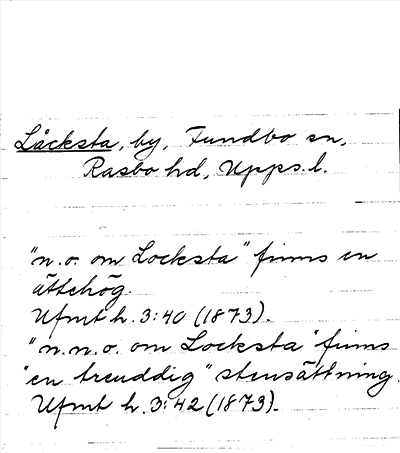 Låcksta, by, Fundbo sn,
Rasbo hd, Upps. l.
"n. o. om Locksta" finns en
ättehög.
Ufmt h. 3:40 (1873).
"n. n. o. om Locksta" finns
"en treuddig" stensättning.
Ufmt h. 3:42 (1873).